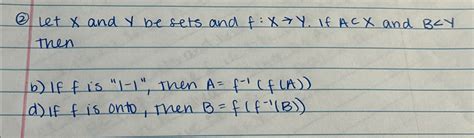 ② Let X and Y be sets and f: X→Y. If A⊂X and B<Y
then
b) If f is "1-1", then A = f⁻¹(f(A))
d) If f is onto, then B = f(f⁻¹(B))